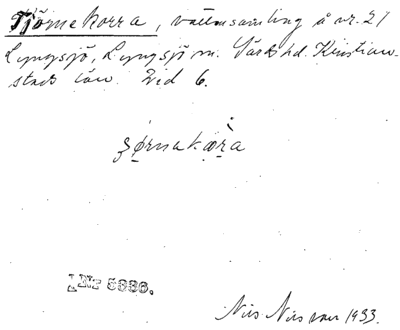 Tjörnekorra, vattensamling å nr. 21
Lyngsjö, Lyngsjö sn. Gärds hd. Kristian-
stads län. Vid 6.
LNr 5886.
Nils Nilsson 1933.